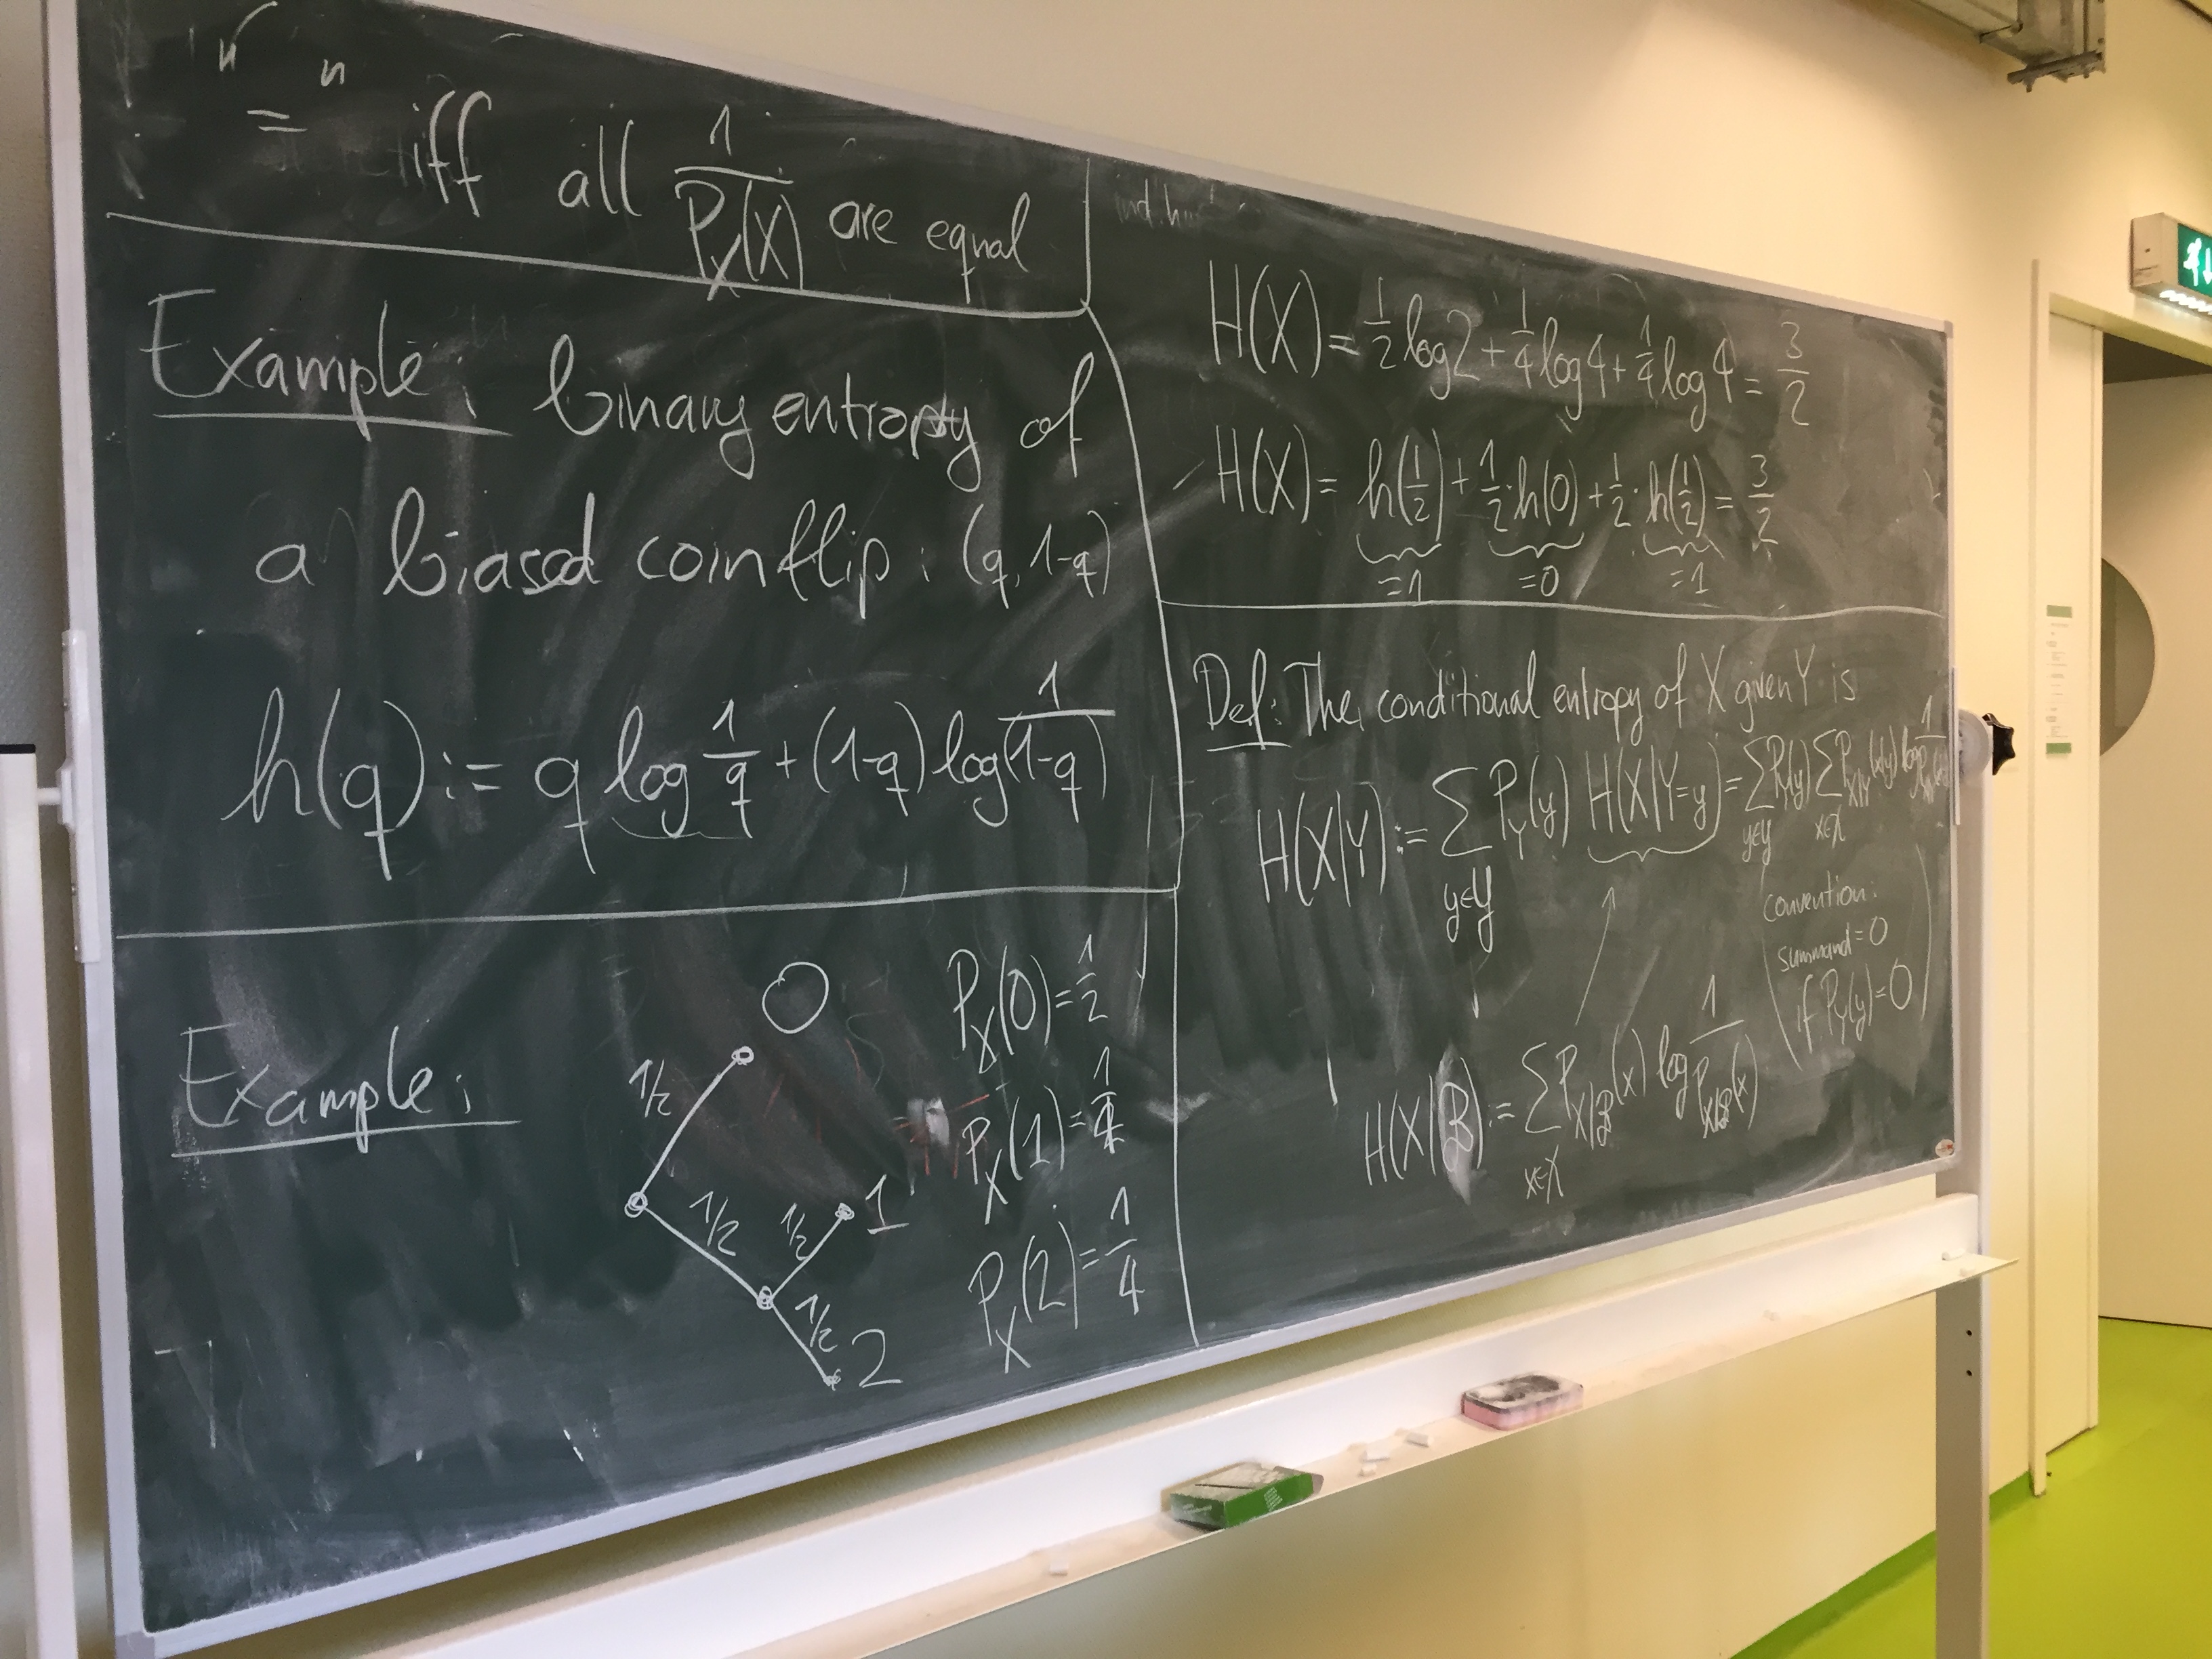 "=" iff all 1/P_X(X) are equal
Example: binary entropy of
a biased coinflip: (q, 1-q)
h(q) := q log 1/q + (1-q) log 1/(1-q)
Example:
0
1/2
1/2
1/2
1
1/2
2
P_X(0) = 1/2
P_X(1) = 1/4
P_X(2) = 1/4
H(X) = 1/2 log 2 + 1/4 log 4 + 1/4 log 4 = 3/2
H(X) = h(1/2) + 1/2 · h(0) + 1/2 · h(1/2) = 3/2
=1 =0 =1
Def: The conditional entropy of X given Y is
H(X|Y) := ∑_{y∈𝒴} P_Y(y) H(X|Y=y) = ∑_{y∈𝒴} P_Y(y) ∑_{x∈𝒳} P_{X|Y}(x|y) log
(convention:
summand = 0
if P_Y(y) = 0)
H(X|ℬ) := ∑_{x∈𝒳} P_{X|ℬ}(x) log 1/P_{X|ℬ}(x)